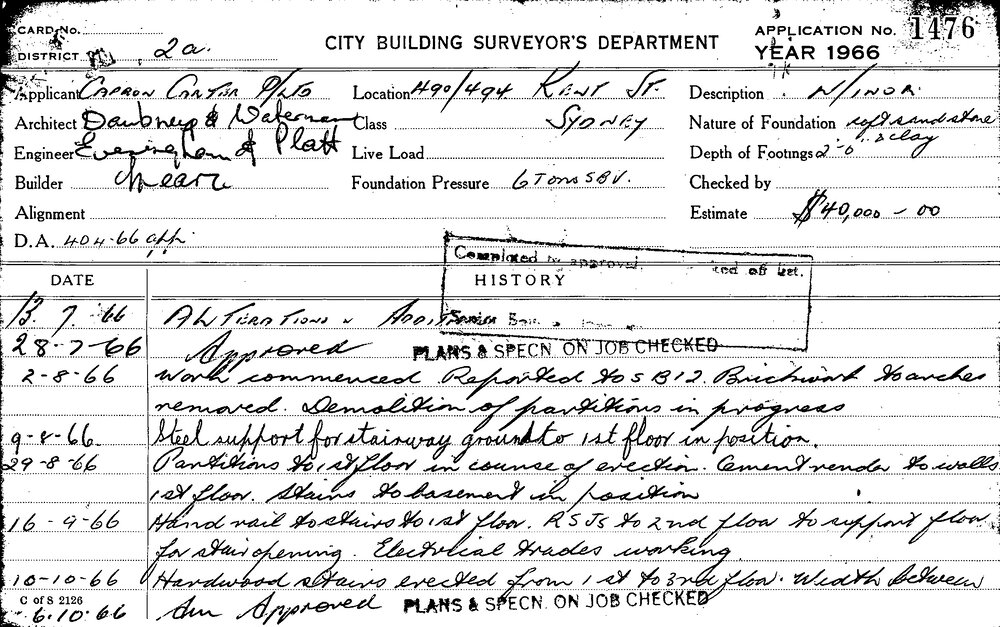 CARD No.
DISTRICT 2a.
CITY BUILDING SURVEYOR'S DEPARTMENT
APPLICATION No. 1476
YEAR 1966
Applicant CAPRON CARTER P/LTD Location 490/494 KENT ST. Description MINOR.
Architect Daubney & Waterman Class SYDNEY Nature of Foundation soft sandstone & clay
Engineer Eveningham & Platt Live Load Depth of Footings 2'-0"
Builder Foundation Pressure 6 TONS SBV. Checked by
Alignment Estimate $40,000-00
D.A. 404-66 app.
Completed approval
DATE HISTORY
13. 7. 66 ALTERATIONS & ADDITIONS
28-7-66 Approved PLANS & SPECN. ON JOB CHECKED
2-8-66 Work commenced. Reported to SB12. Brickwork to arches
removed. Demolition of partitions in progress
9-8-66. Steel support for stairway ground to 1st floor in position.
29-8-66 Partitions to 1st floor in course of erection. Cement render to walls
1st floor. Stairs to basement in position
16-9-66 Hand rail to stairs to 1st floor. RSJs to 2nd floor to support floor
for stair opening. Electrical trades working.
10-10-66 Hardwood stairs erected from 1st to 3rd floor. Width between
C of S 2126
6.10.66 Am Approved PLANS & SPECN. ON JOB CHECKED